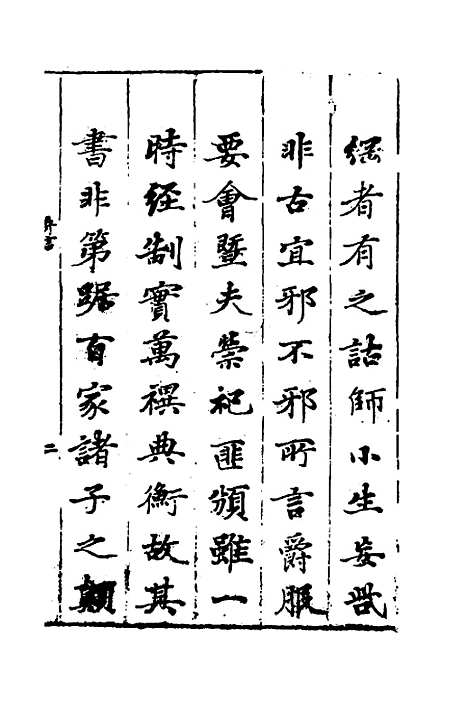 者有之詁師小生妄呰
非古宜邪不邪所言爵服
要會暨夫禜祀匪頒雖一
時経制實萬禩典衡故其
書非第踞百家諸子之顛
弁言
二